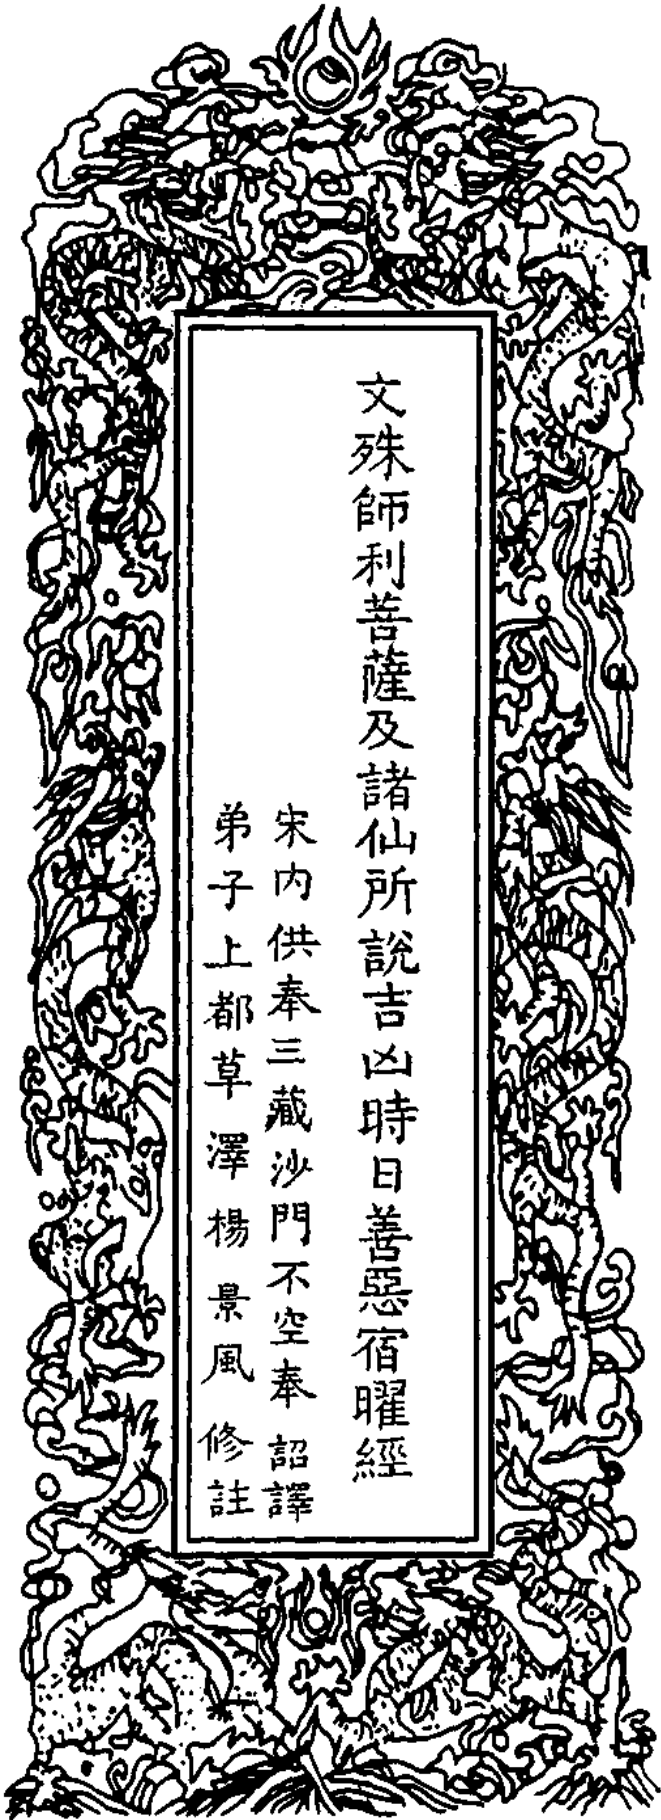 文殊師利菩薩及諸仙所說吉凶時日善惡宿曜經
宋內供奉三藏沙門不空奉詔譯
弟子上都草澤楊景風修註